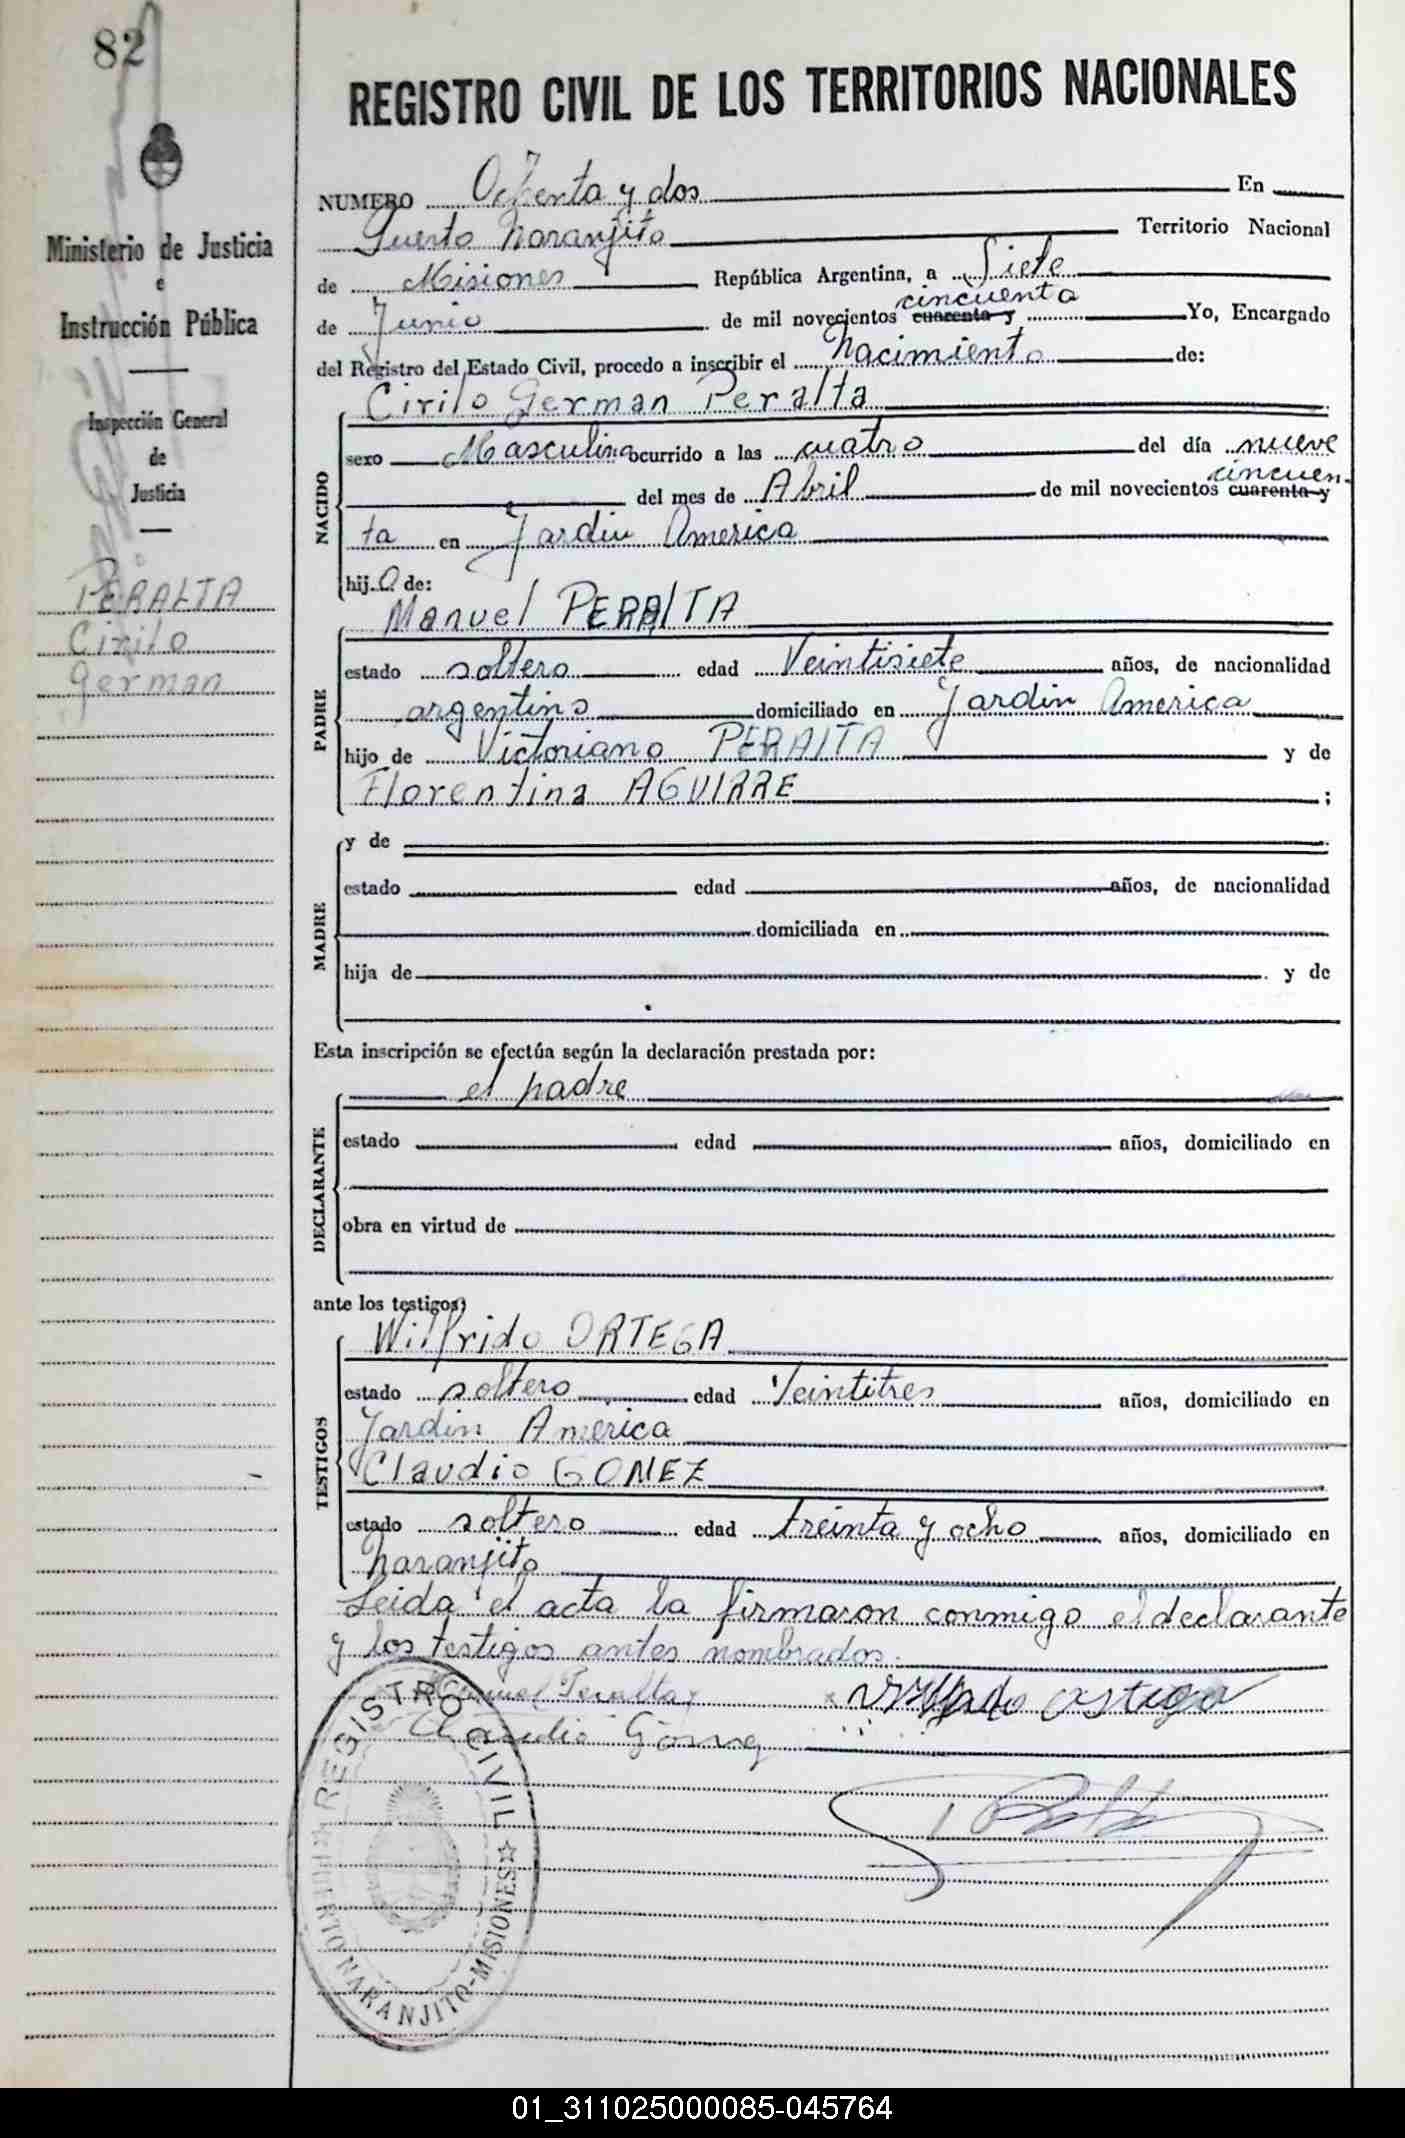 82
REGISTRO CIVIL DE LOS TERRITORIOS NACIONALES
Ministerio de Justicia
e
Instrucción Pública
Inspección General
de
Justicia
PERALTA
Cirilo
German
NUMERO Ochenta y dos En
Puerto Naranjito Territorio Nacional
de Misiones República Argentina, a Siete
cincuenta
de Junio de mil novecientos cuarenta y Yo, Encargado
del Registro del Estado Civil, procedo a inscribir el Nacimiento de:
NACIDO
Cirilo German Peralta
sexo Masculino ocurrido a las cuatro del día nueve
cincuen-
del mes de Abril de mil novecientos cuarenta y
ta en Jardin America
hij o de:
PADRE
Manuel PERALTA
estado soltero edad Veintisiete años, de nacionalidad
argentino domiciliado en Jardin America
hijo de Victoriano PERALTA y de
Florentina AGUIRRE ;
MADRE
y de
estado edad años, de nacionalidad
domiciliada en
hija de y de
Esta inscripción se efectúa según la declaración prestada por:
DECLARANTE
el padre
estado edad años, domiciliado en
obra en virtud de
ante los testigos:
TESTIGOS
Wilfrido ORTEGA
estado soltero edad Veintitres años, domiciliado en
Jardin America
Claudio GOMEZ
estado soltero edad treinta y ocho años, domiciliado en
Naranjito
Leida el acta la firmaron conmigo el declarante
y los testigos antes nombrados.
Manuel Peralta
Claudio Gomez
REGISTRO CIVIL
PUERTO NARANJITO-MISIONES
01_311025000085-045764